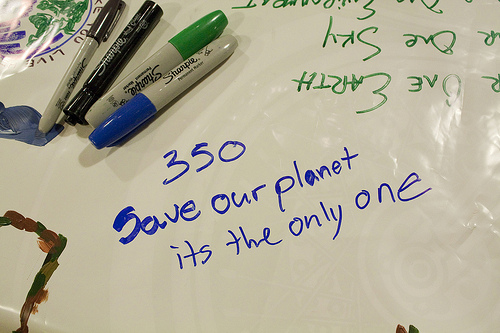 350
Save our planet
its the only one
ONE EARTH
ONE SKY
ONE ENVIRONMENT
Sharpie
Sharpie
Sharpie
YOU LIVE